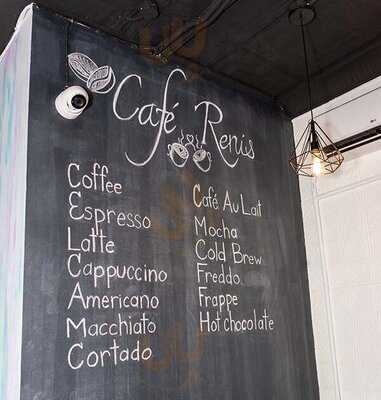 Café Renis
Coffee
Espresso
Latte
Cappuccino
Americano
Macchiato
Cortado
Café Au Lait
Mocha
Cold Brew
Freddo
Frappe
Hot chocolate